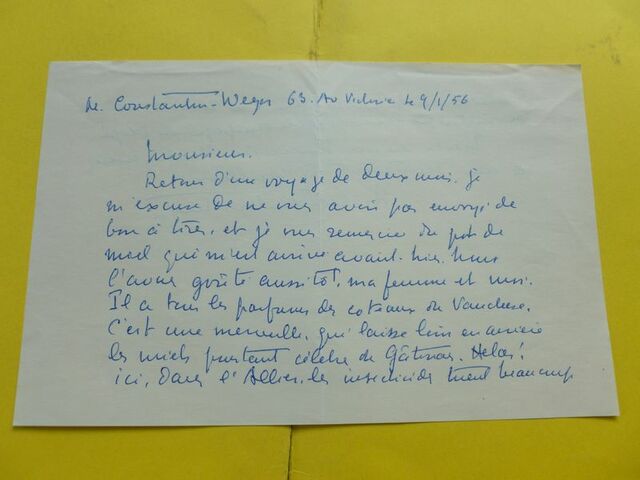 M. Constantin-Weyer 63. Av Victoria le 9/1/56
Monsieur.
Retour d'une voyage de deux mois. je
m'excuse de ne vous avoir pas envoyé de
bon à tirer, et je vous remercie du pot de
miel qui m'est arrivé avant-hier. Nous
l'avons goûté aussitôt, ma femme et moi.
Il a tous les parfums des coteaux de Vaucluse.
C'est une merveille, qui laisse loin en arrière
les miels pourtant célèbre de Gâtinais. Hélas!
ici, dans l'Allier, les insecticides tuent beaucoup